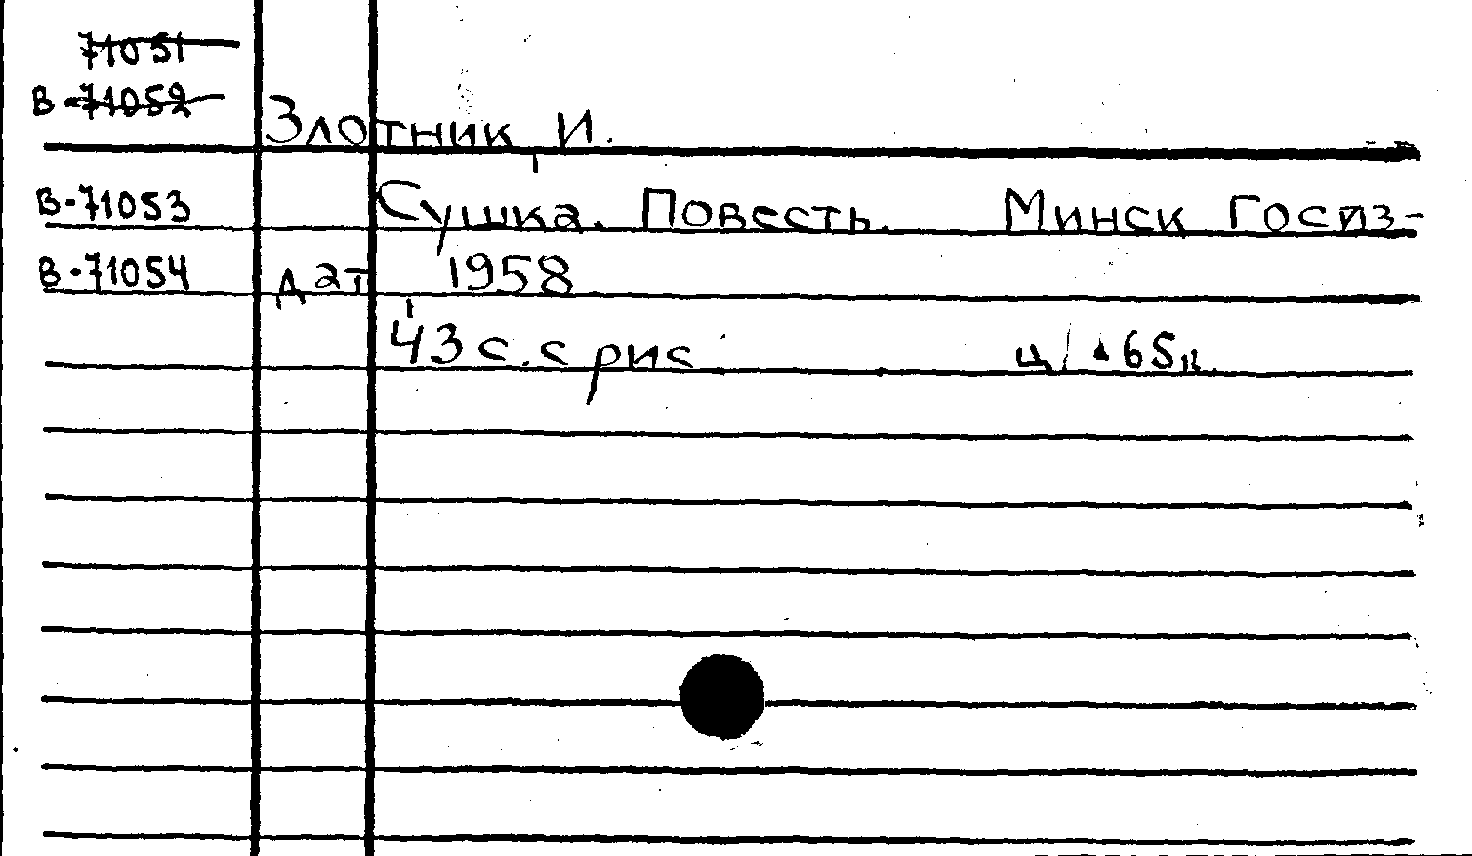 71051
В-71052
Злотник, И.
В-71053 Сушка. Повесть. Минск Госиз-
В-71054 дат, 1958
43 с. с рис ц/ 65к.